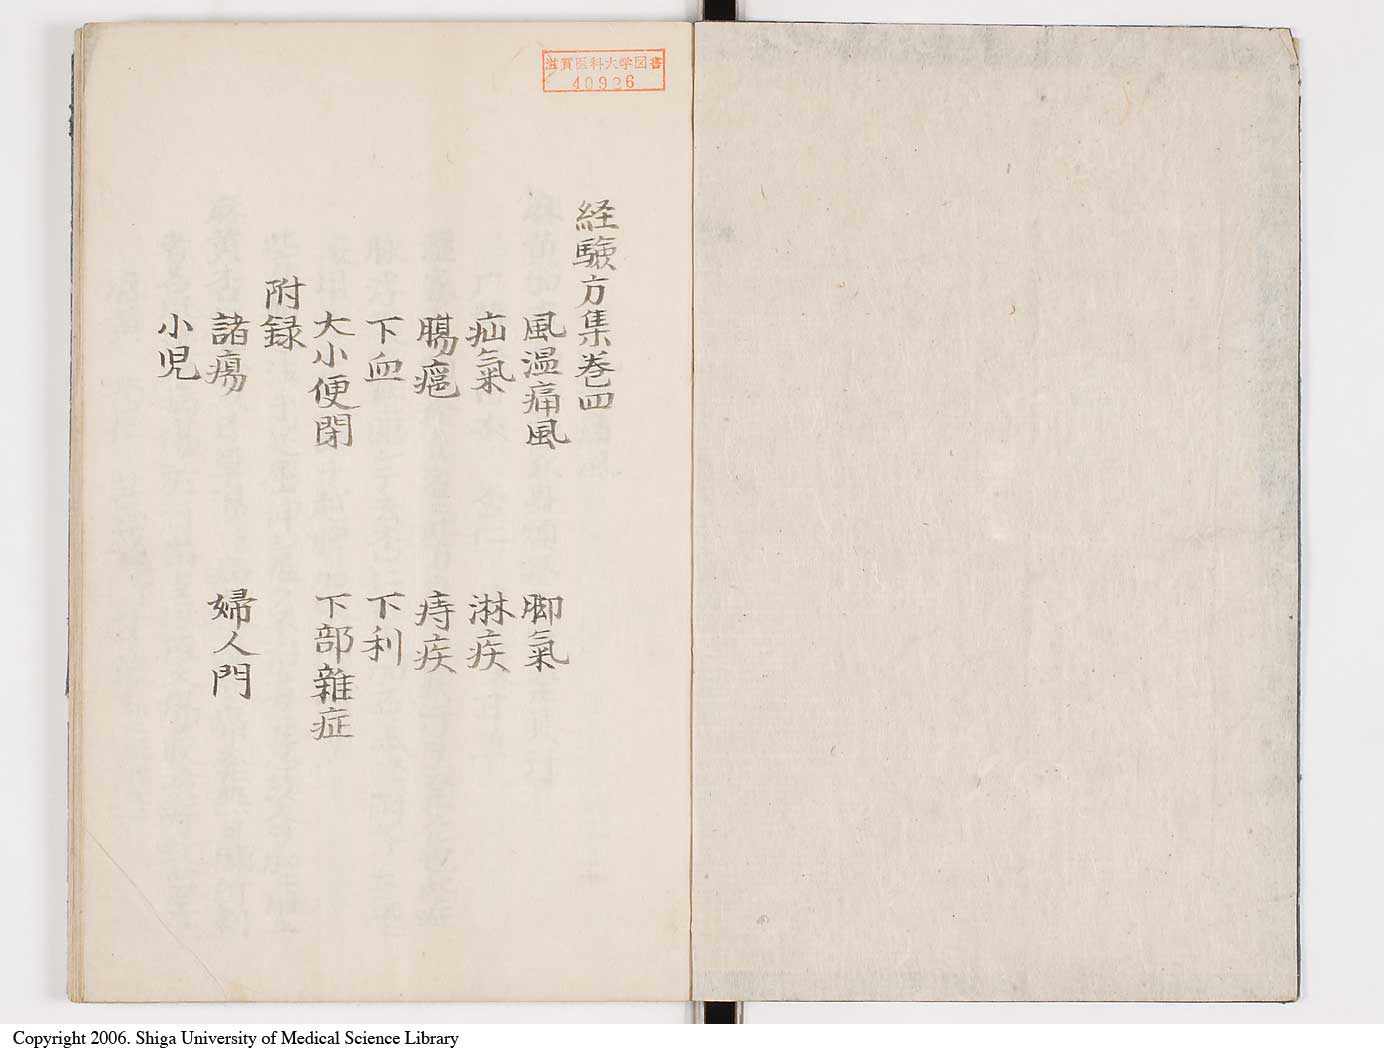 滋賀医科大学図書
40926
経験方集巻四
風湿痛風 脚氣
疝氣 淋疾
腸癰 痔疾
下血 下利
大小便閉 下部雜症
附録
諸瘍 婦人門
小児
Copyright 2006. Shiga University of Medical Science Library